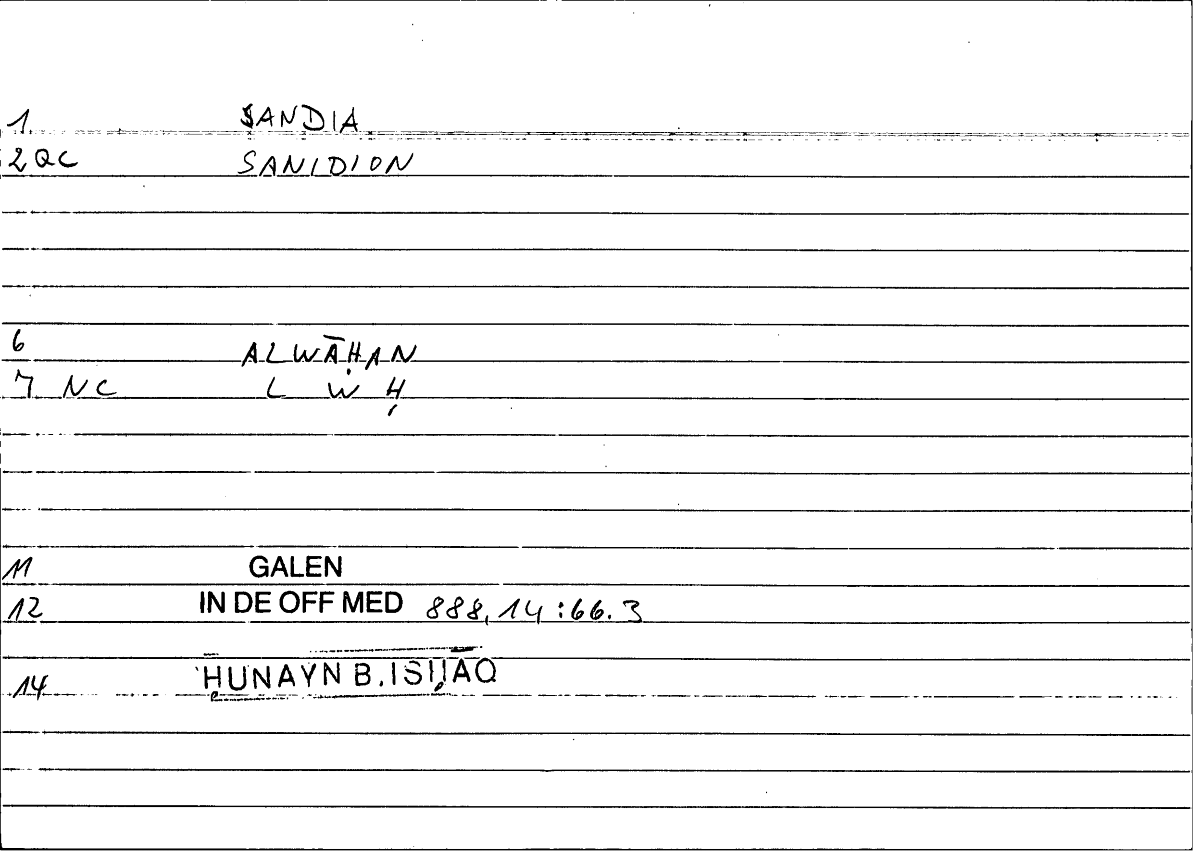 1 SANDIA
2 QC SANIDION
6 ALWĀḤAN
7 NC L Ẇ Ḥ
11 GALEN
12 IN DE OFF MED 888,14:66.3
14 ḤUNAYN B. ISḤĀQ